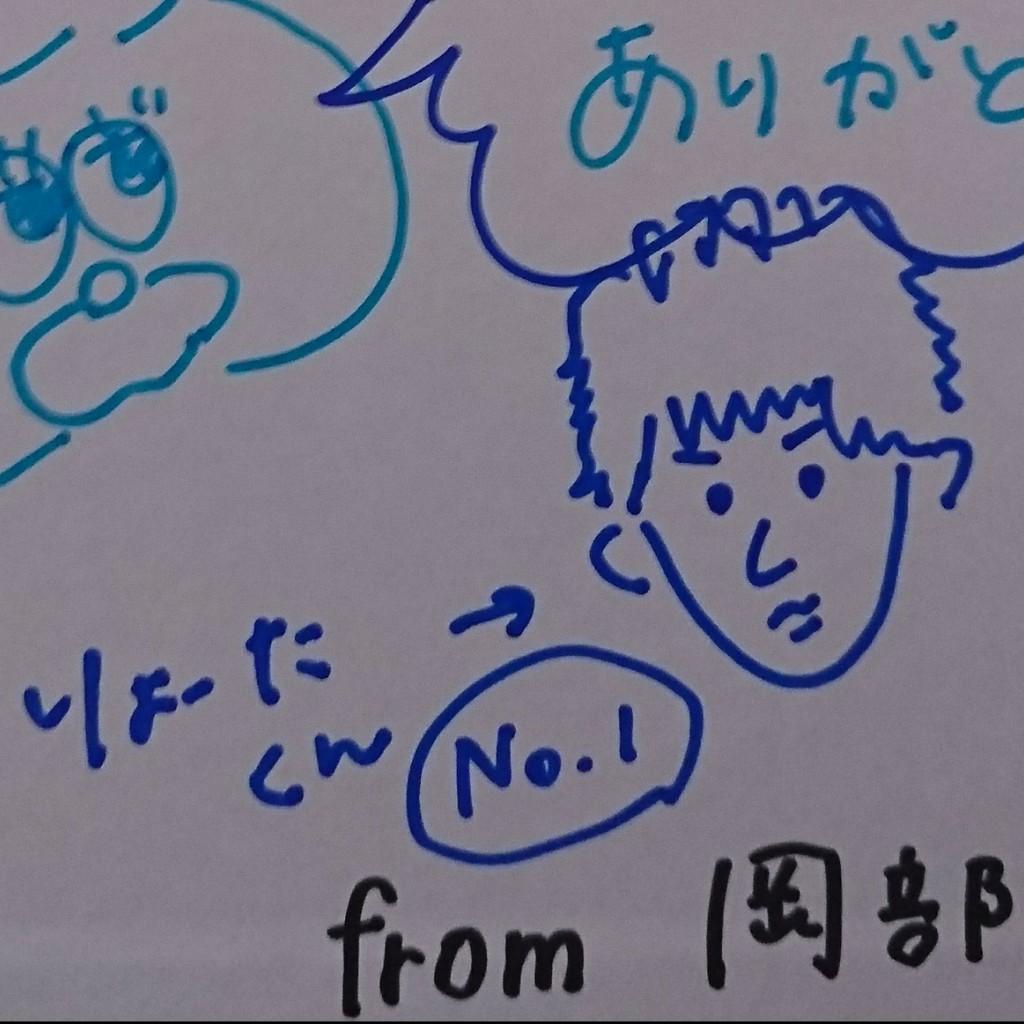 ありがと
りょーた
くん
No.1
from 岡部